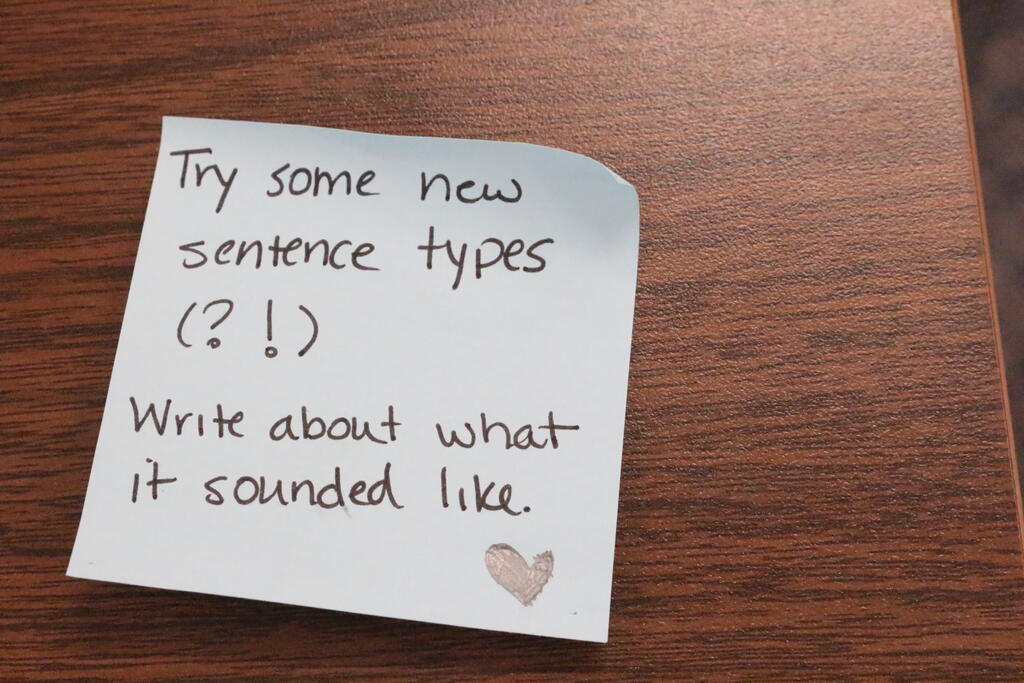 Try some new
sentence types
(? !)
Write about what
it sounded like.